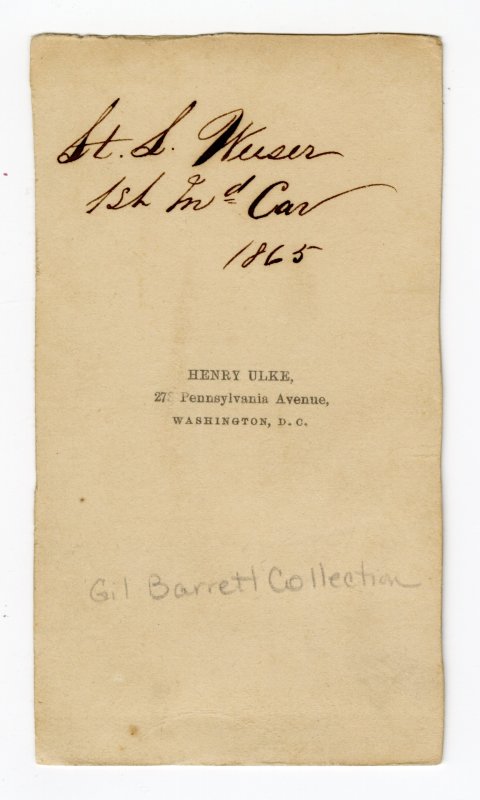 Lt. L. Weiser
1st Md Cav
1865
HENRY ULKE,
278 Pennsylvania Avenue,
WASHINGTON, D. C.
Gil Barrett Collection